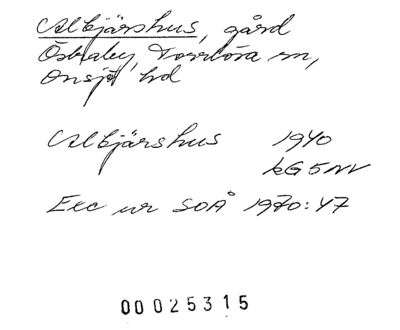 Albjärshus, gård
Östraby, Torrlösa sn,
Onsjö hd
Albjärshus 1940
kG5NV
Exc ur SOÅ 1970:47
00025315